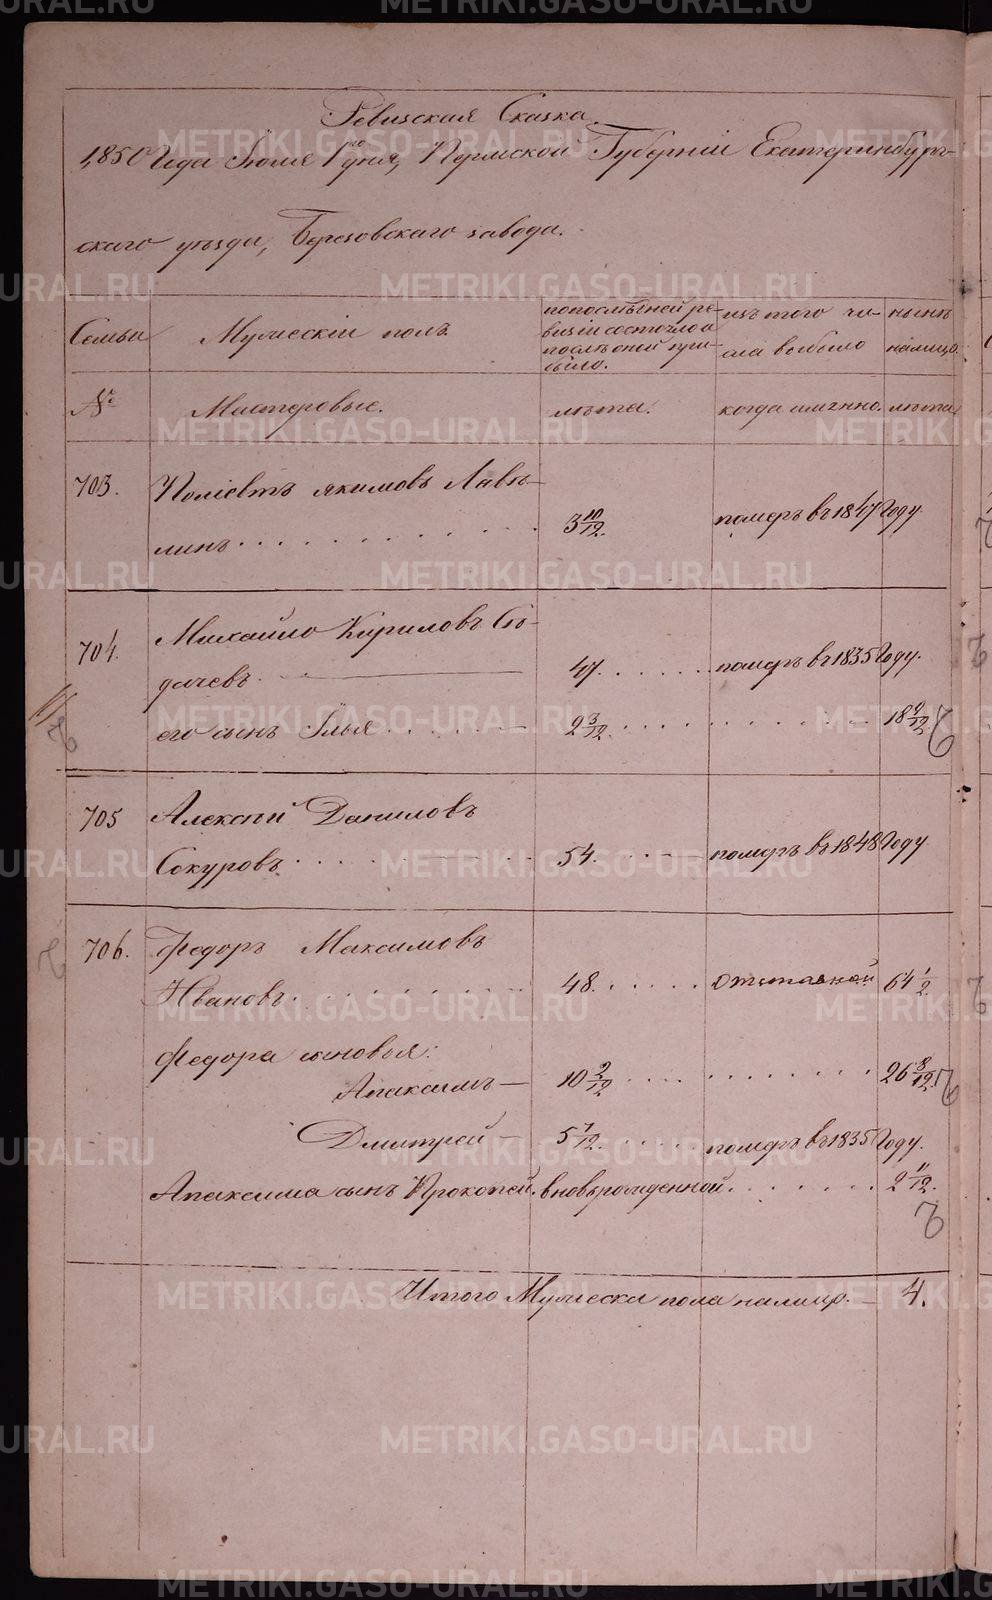 Ревизская Сказка
1850 Года Июля 1го дня, Пермской Губерніи Екатеринбург-
скаго уѣзда, Березовскаго завода.
Семьи
Мужескій полъ
по последней ре-
визіи состояло и
послѣ оной при-
было.
изъ того чи-
сла выбыло
нынѣ
налицо.
№
Мастеровые.
лѣта.
когда именно.
лѣта
703.
Поліевтъ Якимовъ
линъ
3 10/12.
померъ въ 1847 Году.
704.
Михайло Кириловъ
47.
померъ въ 1835 Году.
его сынъ Илья
2 3/12.
18 9/12
705
Алексѣй Даниловъ
Сокуровъ
54.
померъ въ 1848 Году.
706.
Федоръ Максимовъ
Ивановъ
48.
отставной
64 1/2
Федора сыновья:
Апаксимъ —
10 2/12
26 8/12.
Дмитрей
5 1/12.
померъ въ 1835 Году.
Апаксима сынъ Прокопей. вновьрожденной.
2 11/12.
Итого Мужеска пола налицо. — 4.
METRIKI.GASO-URAL.RU